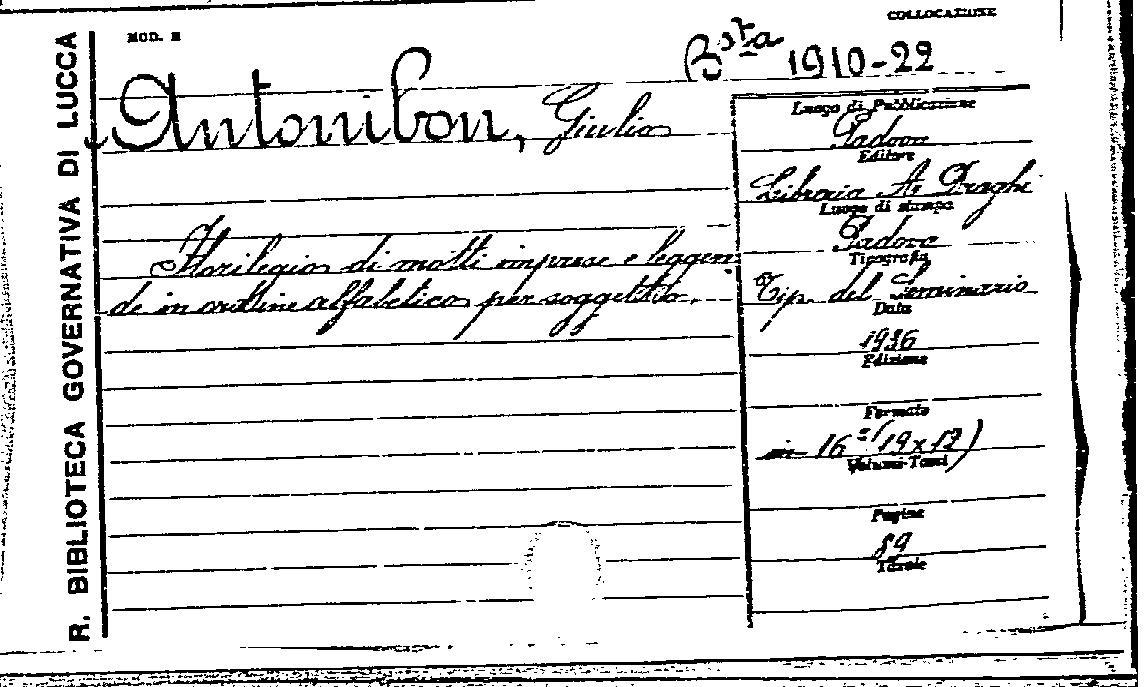 COLLOCAZIONE
MOD. E
R. BIBLIOTECA GOVERNATIVA DI LUCCA
Bsta 1910-22
Antonibon, Giulio
Luogo di Pubblicazione
Padova
Editore
Libreria A. Draghi
Luogo di stampa
Padova
Tipografia
Tip. del Seminario
Data
1936
Edizione
Formato
in 16° (19x12)
Volumi-Tomi
Pagine
89
Tavole
Florilegio di motti imprese e leggen
de in ordine alfabetico per soggetto.